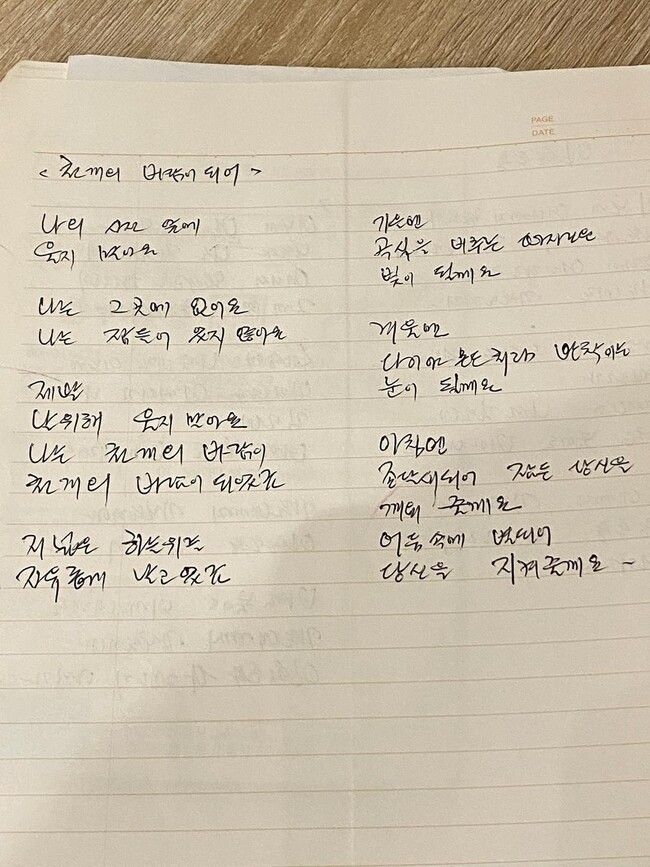 PAGE
DATE
< 천개의 바람이 되어 >
나의 사진 앞에
울지 말아요
나는 그 곳에 없어요
나는 잠들어 있지 않아요
제발
날 위해 울지 말아요
나는 천개의 바람이
천개의 바람이 되었죠
저 넓은 하늘위를
자유롭게 날고 있죠
가을엔
곡식을 비추는 따사로운
빛이 될께요
겨울엔
다이아몬드처럼 반짝이는
눈이 될께요
아침엔
종달새되어 잠든 당신을
깨워 줄께요
어둠 속에 별되어
당신을 지켜줄께요 ~